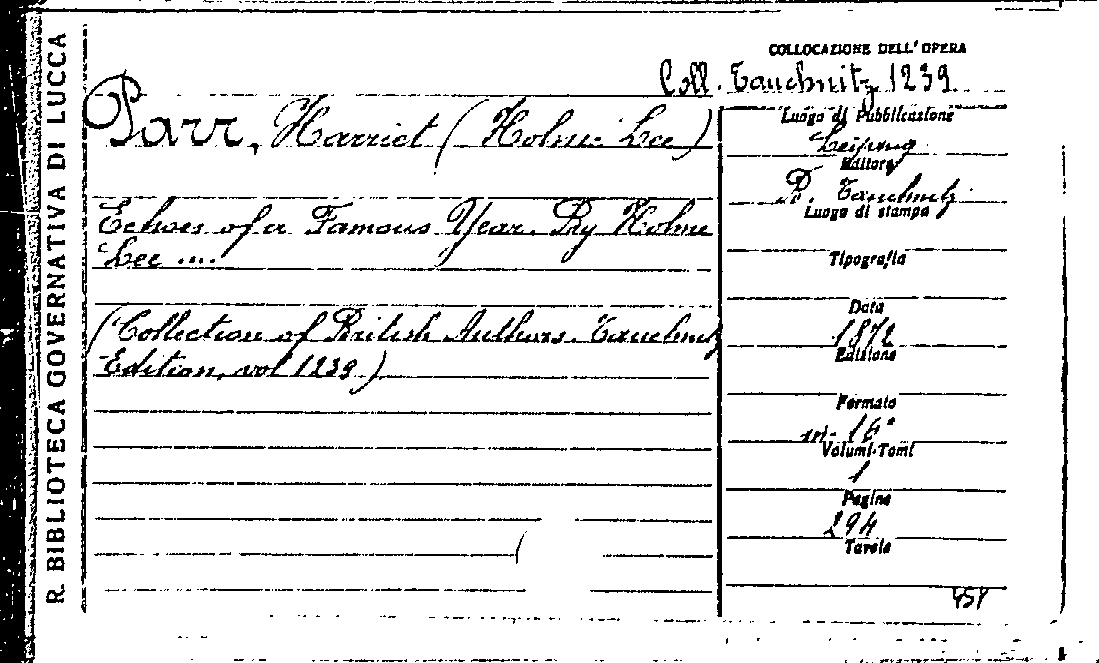 R. BIBLIOTECA GOVERNATIVA DI LUCCA
COLLOCAZIONE DELL' OPERA
Coll. Tauchnitz 1239
Parr, Harriet (Holme Lee)
Echoes of a Famous Year. By Holme
Lee ....
(Collection of British Authors. Tauchnitz
Edition, vol 1239)
Luogo di Pubblicazione
Leipzig
Editore
B. Tauchnitz
Luogo di stampa
Tipografia
Data
1872
Edizione
Formato
in-16°
Volumi-Tomi
1
Pagine
294
Tavole